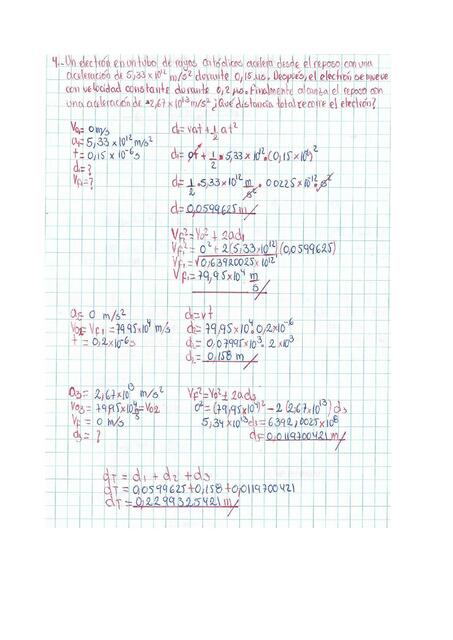 4.- Un electrón en un tubo de rayos catódicos acelera desde el reposo con una
aceleración de 5,33 x 10¹² m/s² durante 0,15 μs. Después, el electrón se mueve
con velocidad constante durante 0,2 μs. Finalmente alcanza el reposo con
una aceleración de -2,67 x 10¹³ m/s² ¿Qué distancia total recorre el electrón?
V₀= 0 m/s
a₁= 5,33 x 10¹² m/s²
t = 0,15 x 10⁻⁶ s
d₁= ?
Vf₁= ?
d₁= v₀t + 1/2 at²
d₁= 0t + 1/2 · 5,33 x 10¹² · (0,15 x 10⁻⁶)²
d₁= 1/2 · 5,33 x 10¹² m/s² · 0.0225 x 10⁻¹² s²
d₁= 0,0599625 m
Vf₁² = V₀² + 2ad₁
Vf₁² = 0² + 2(5,33 x 10¹²)(0,0599625)
Vf₁ = √0,63920025 x 10¹²
Vf₁ = 79,95 x 10⁴ m/s
a₂= 0 m/s²
V₀₂= Vf₁ = 79,95 x 10⁴ m/s
t = 0,2 x 10⁻⁶ s
d₂= vt
d₂= 79,95 x 10⁴ · 0,2 x 10⁻⁶
d₂= 0,07995 x 10³ · 2 x 10³
d₂= 0,158 m
a₃= 2,67 x 10¹³ m/s²
V₀₃= 79,95 x 10⁴ = V₀₂
Vf = 0 m/s
d₃= ?
Vf² = V₀² + 2ad₃
0² = (79,95 x 10⁴)² - 2 (2,67 x 10¹³) d₃
5,34 x 10¹³ d₃ = 6392,0025 x 10⁸
d₃= 0,0119700421 m
dT = d₁ + d₂ + d₃
dT = 0,0599625 + 0,158 + 0,0119700421
dT = 0,2299325421 m